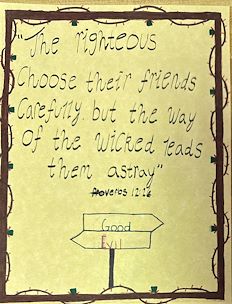 "The righteous
Choose their friends
Carefully, but the way
Of the wicked leads
them astray"
Proverbs 12:26
Good
Evil